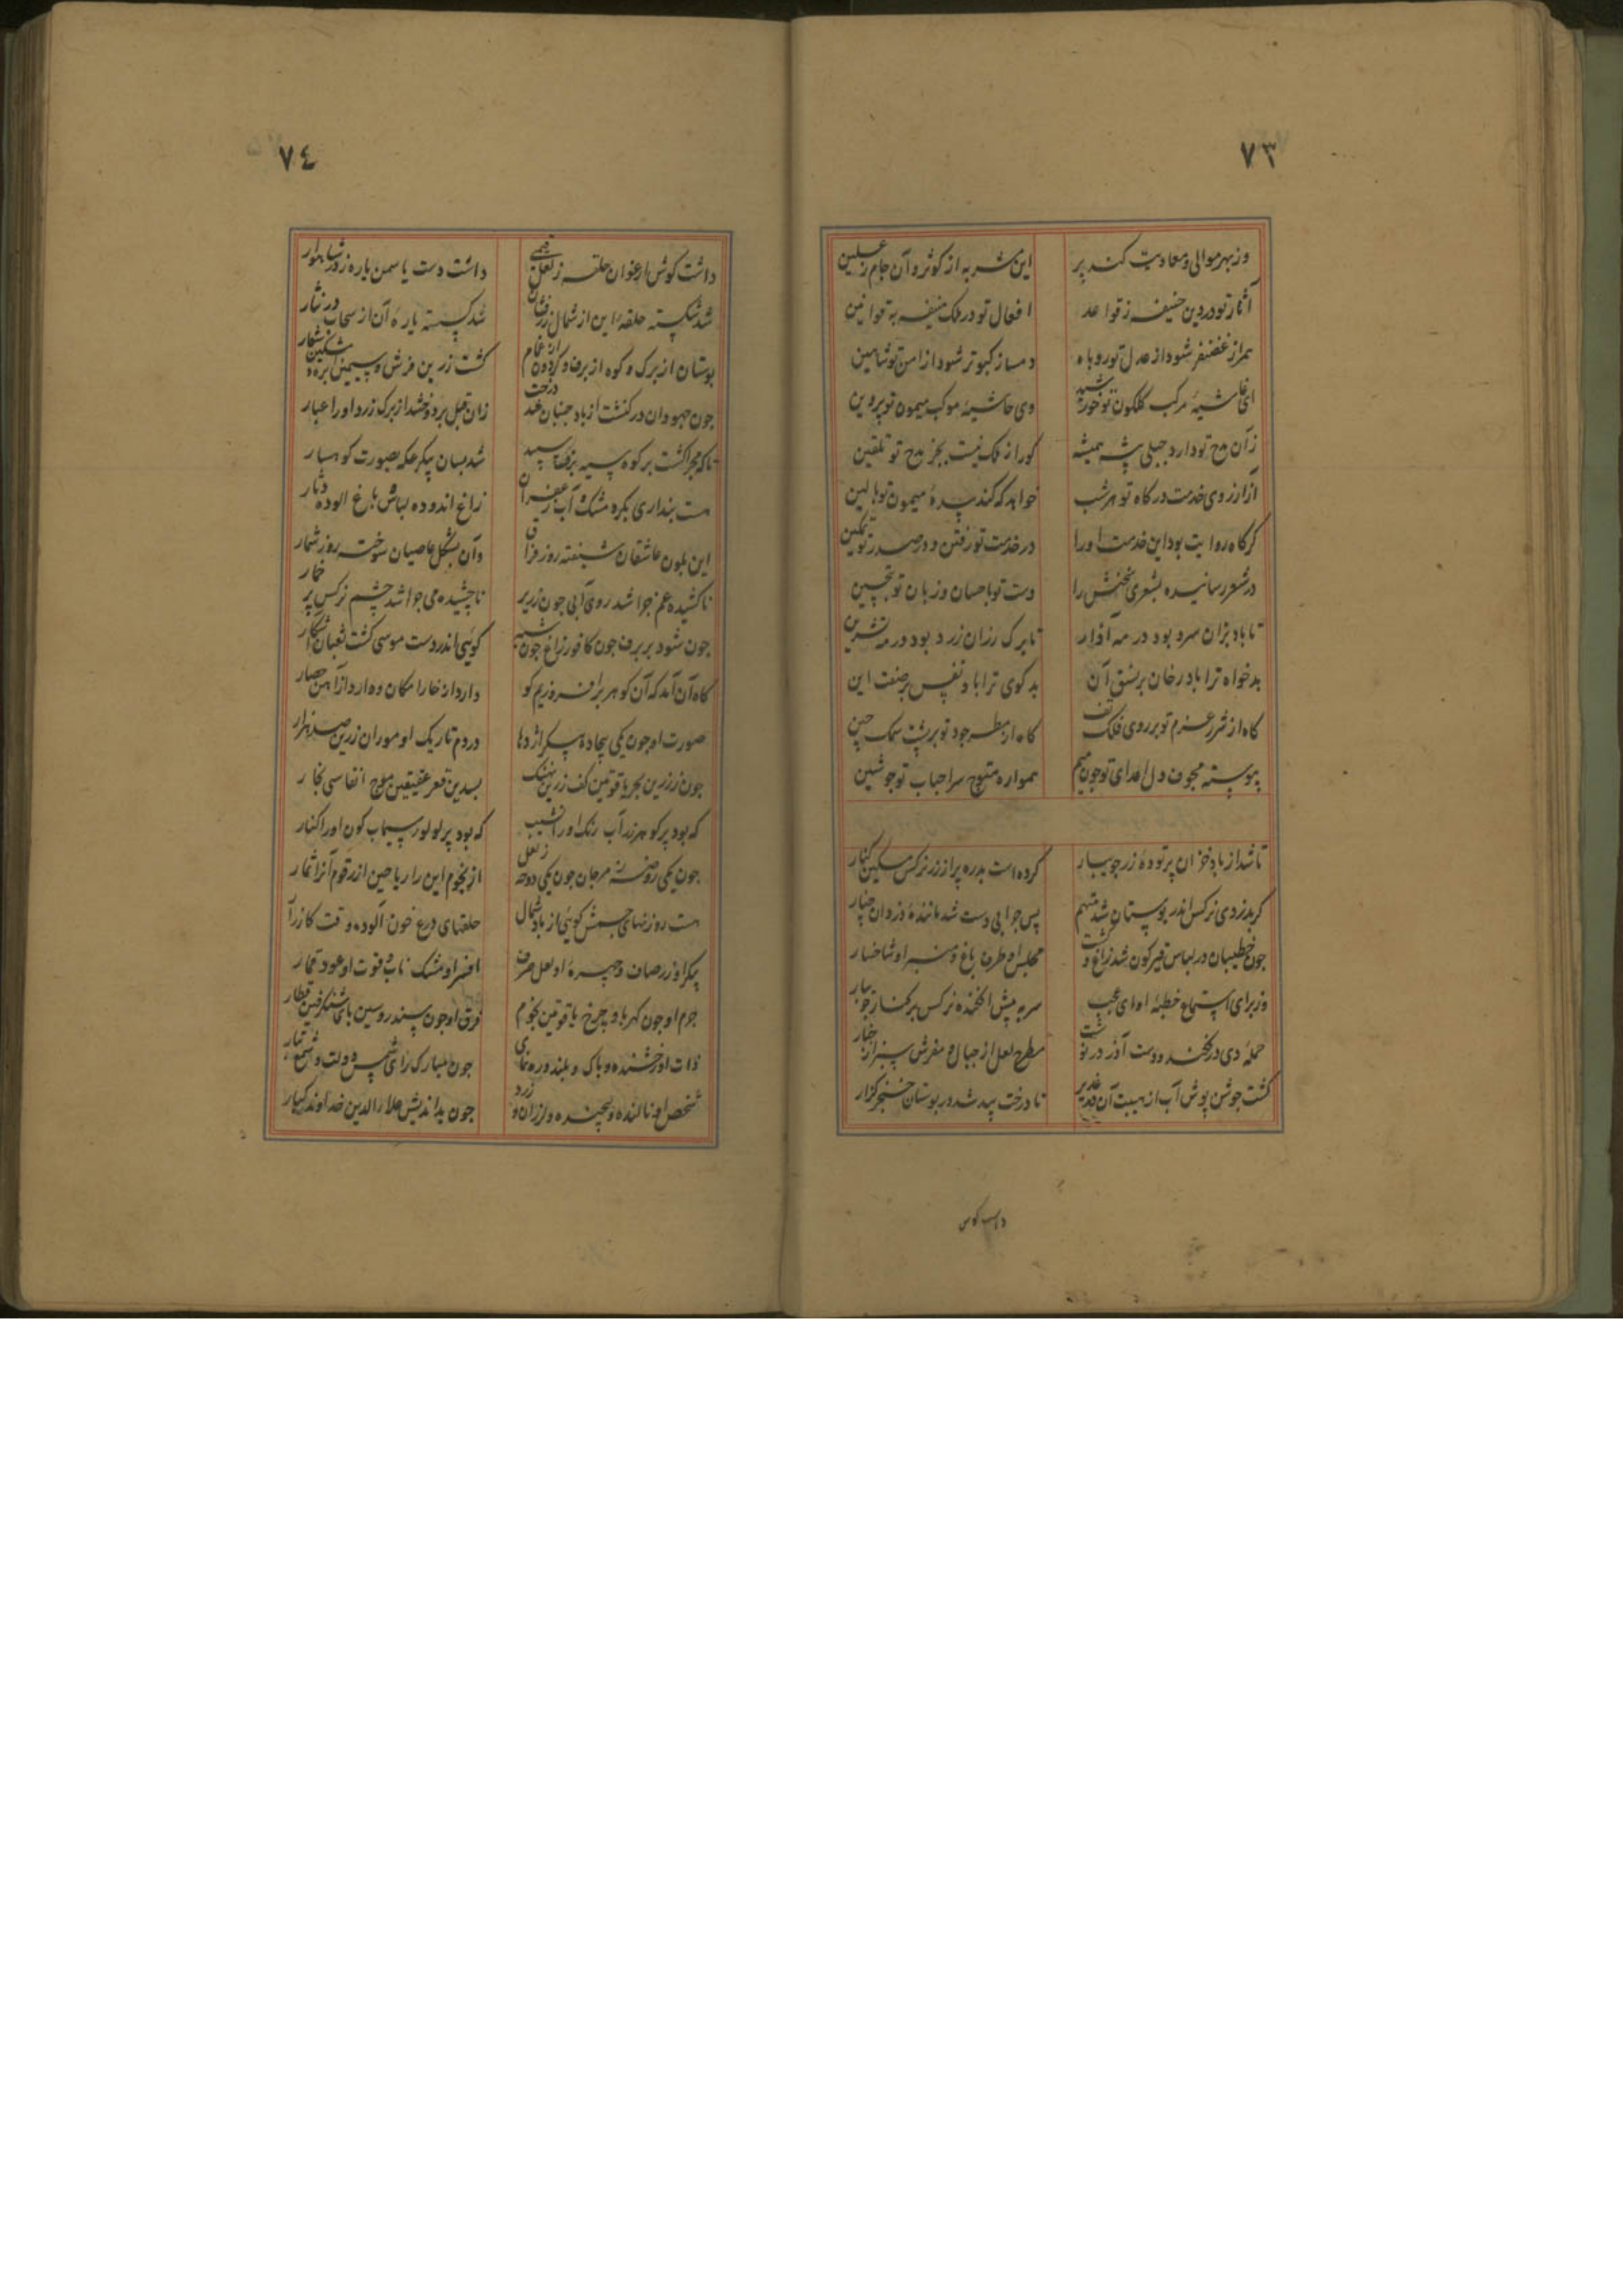 ٧٣
وز بهر موالی و معادیت کند پر این شربه از کوثر و آن جام ز غسلین
آثار تو در دین حنیف ز قواعد افعال تو در ملک منیف به قوانین
همراز غضنفر شود از عدل تو روباه دمساز کبوتر شود از امن تو شاهین
ای غاشیهٔ مرکب گلگون تو خورشید وی حاشیهٔ موکب میمون تو پروین
زآن مدح تو دارد جبلی پیشه همیشه کورا ز فلک نیست بجز مدح تو تلقین
از آرزوی خدمت درگاه تو هر شب خواهد که کند سدهٔ میمون تو بالین
گرگاه روایت بود این خدمت او را در خدمت تو رفتن و در صدر تو تمکین
در شعر رسانیده بشعری سخنش را دست تو باحسان و زبان تو بتحسین
تا باد بزان سرد بود در مه آذار تا برگ رزان زرد بود در مه تشرین
بدخواه ترا باد رخان بر نسق آن بدگوی ترا باد نفس بر صفت این
گاه از شرر عزم تو بر روی فلک تف گاه از مطر جود تو بر پشت سمک چین
پیوسته مجوف دل اعدای تو چون میم همواره متوج سر احباب تو چو شین
تا شد از باد خزان پر تودهٔ زر جویبار کرده است بدره پر از زر نرگس مسکین کنار
گر بدزدی نرگس اندر بوستان شد متهم پس چرا بی دست شد مانندهٔ دزدان چنار
چون خطیبان در لباس قیرگون شد زاغ و گشت مجلس او طرف باغ و منبر او شاخسار
وز برای استماع خطبهٔ او ای عجب سر به پیش افکنده نرگس بر کنار جویبار
حملهٔ دی درفکند و دست آذر درنوشت مطرح لعل از جبال و مفرش سبز از خبار
گشت جوشن پوش آب از هیبت آن در غدیر تا درخت بید شد در بوستان خنجرگزار
داشت گوش
٧٤
داشت گوش ارغوان حلقه ز لعل قیمتی داشت دست یاسمن یاره ز در شاهوار
شد شکسته حلقهٔ این از شمال زرفشان شد گسسته یارهٔ آن از سحاب در نثار
بوستان از برگ و کوه از برف و گردون از غمام گشت زرین فرش و سیمین ابره و مشکین شعار
چون جهودان در کنشت از باد جنبان شد درخت زان قبل بر دوخشد از برگ زرد او را غیار
تا که مجرا گشت بر کوه سیه برف سپید شد بسان پیکر عکه بصورت کوهسار
هست پنداری بکره مشک و آب زعفران زاغ اندوده لباس و باغ آلوده دثار
این بلون عاشقان شیفته روز فراق وآن بشکل عاصیان سوخته روز شمار
ناکشیده غم چرا شد روی آبی چون زریر ناچشیده می چرا شد چشم نرگس پر خمار
چون شود بر برف چون کافور زاغ چون شبه گوئی اندر دست موسی گشت ثعبان آشکار
گاه آن آمد که آن گوهر برافروزیم کو دارد از خارا مکان و دارد از آهن حصار
صورت او چون یکی بیجاده پیکر اژدها در دم تاریک او موران زرین صد هزار
چون ز زرین بحر یاقوتین کف زرین نهنگ بسدین قعر عقیقین موج انفاسی بخار
که بود پر گوهر زرآب رنگ او را نشیب که بود پر لولوء سیماب گون او را کنار
چون یکی روضه ز مرجان چون یکی دوحه ز لعل از نجوم این را ریاحین از رقوم آنرا ثمار
هست روزنهای چشمش گوئی از باد شمال حلقهای درع خون آلود وقت کارزار
پیکر او زر صاف و چهرهٔ او لعل صرف افسر او مشک ناب و قوت او عود قمار
جرم او چون کهربا و چرخ یاقوتین نجوم فرق او چون سندروسین با شنگرفین قطار
ذات او رخشنده و پاک و بلند و ره نمای چون مبارک رای شمس دولت و شمع تبار
شخص او نالنده و پیچنده و لرزان و زرد چون بداندیش علاءالدین خداوند کبار